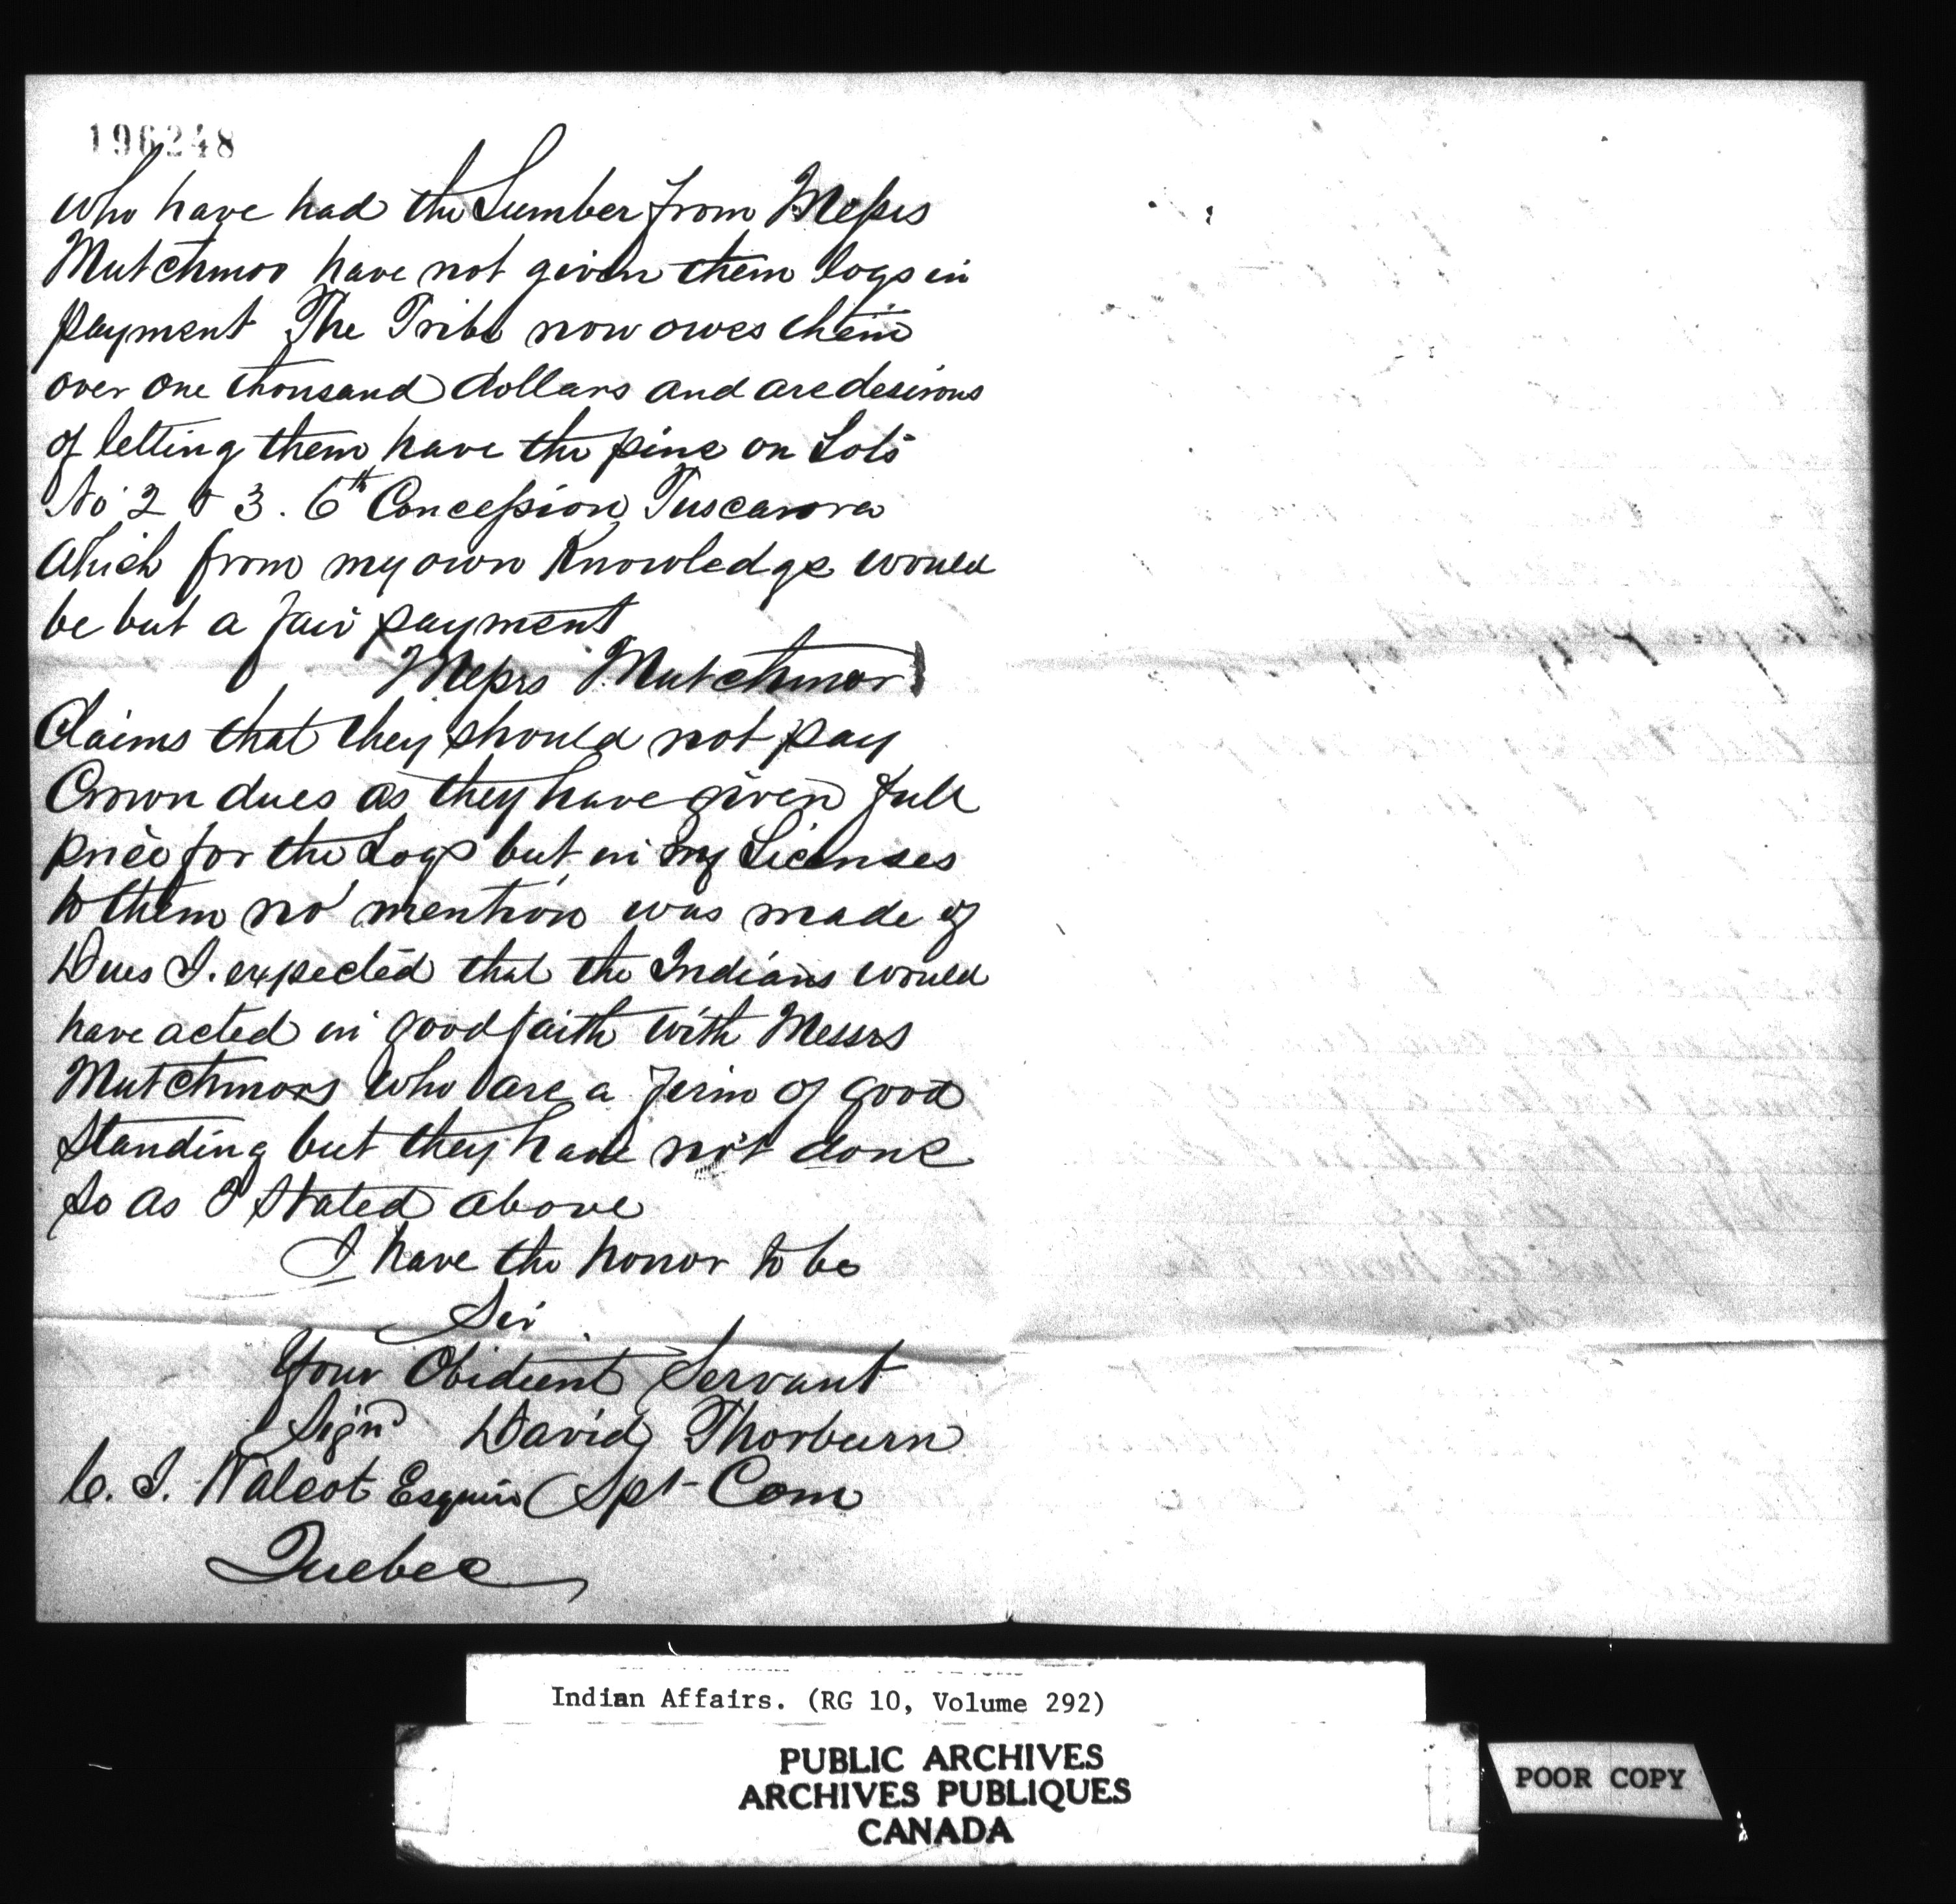 196248
who have had the Lumber from Messrs
Mutchmor have not given them logs in
payment The Tribe now owes them
over one thousand dollars and are desirous
of letting them have the pine on Lots
No 2 & 3. 6th Concession Tuscarora
which from my own Knowledge would
be but a fair payment
Messrs Mutchmor
Claims that they should not pay
Crown dues as they have given full
price for the Logs but in my Licenses
to them no mention was made of
Dues I. expected that the Indians would
have acted in good faith with Messrs
Mutchmors who are a ferim of good
standing but they have not done
so as I stated above
I have the honor to be
Sir
Your Obidient Servant
Signd David Thorburn
C. T. Walcot Esquire Spt Com
Quebec
Indian Affairs. (RG 10, Volume 292)
PUBLIC ARCHIVES
ARCHIVES PUBLIQUES
CANADA
POOR COPY